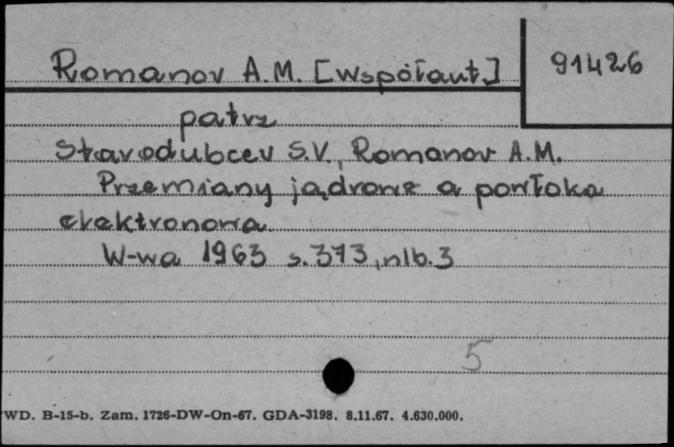 Romanov A.M. [Współaut]
91426
patrz
Starodubcev S.V., Romanov A.M.
Przemiany jądrowe a powłoka
elektronowa.
W-wa 1963 s.373, nlb.3
5
WD. B-15-b. Zam. 1726-DW-On-67. GDA-3198. 8.11.67. 4.630.000.